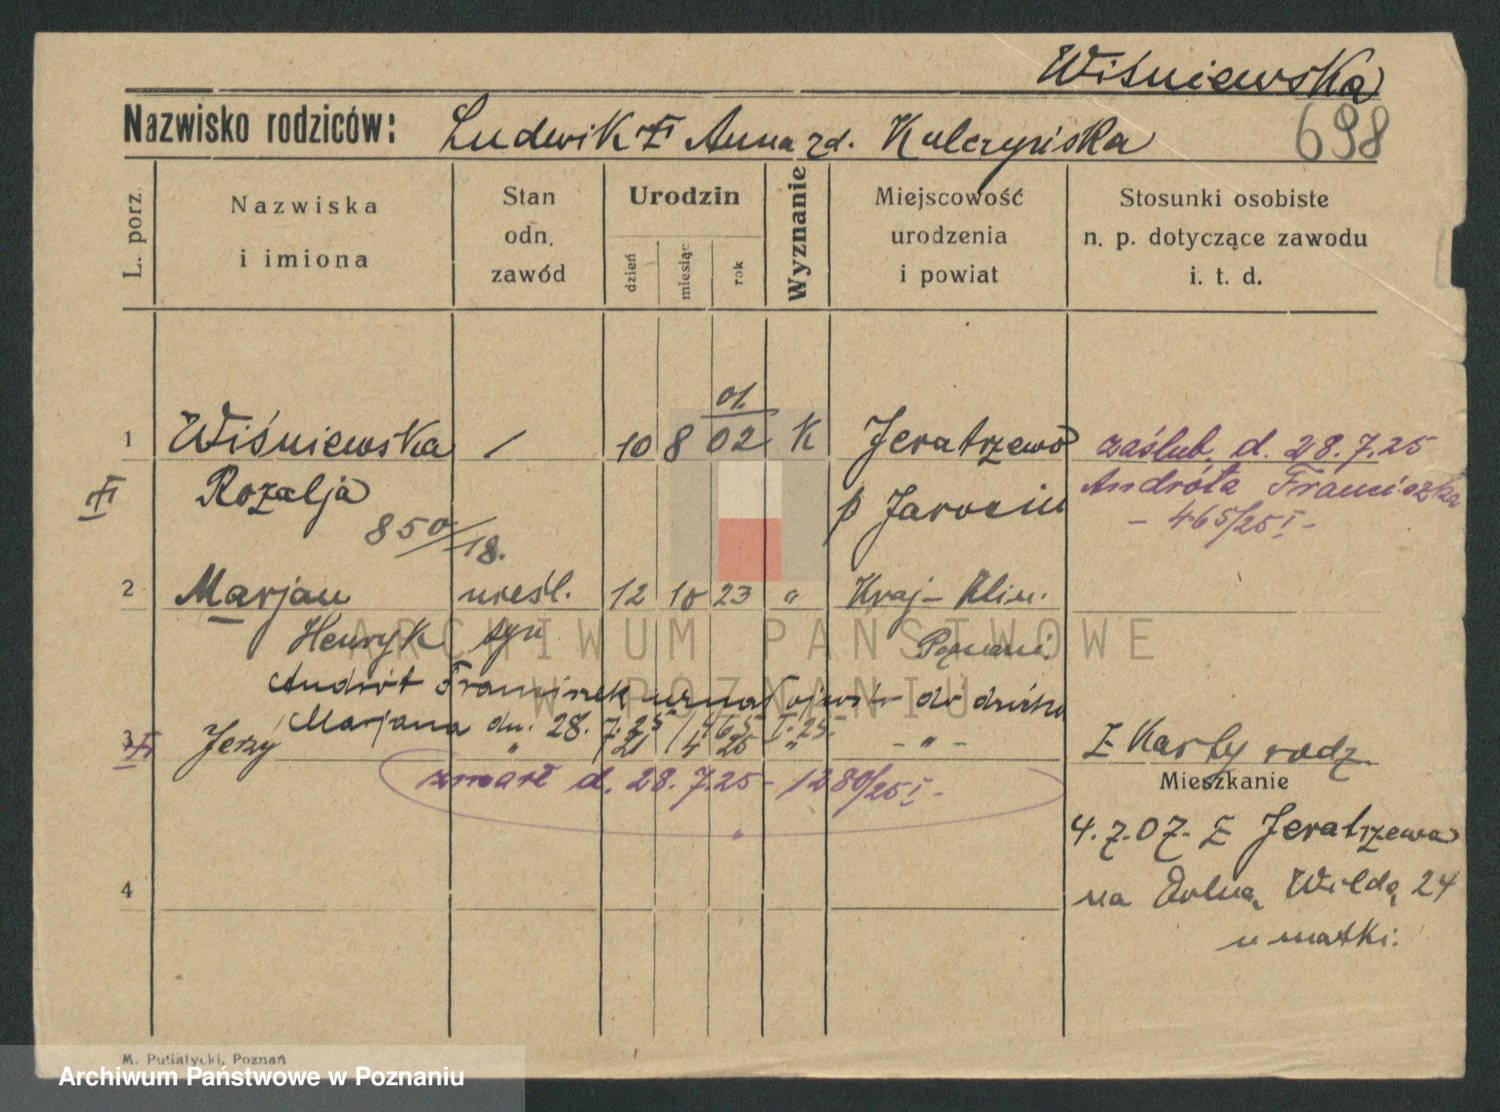 Wiśniewska
Nazwisko rodziców: Ludwik Anna zd. Kulczyńska 698
L. porz.
Nazwiska
i imiona
Stan
odn.
zawód
Urodzin
dzień
miesiąc
rok
Wyznanie
Miejscowość
urodzenia
i powiat
Stosunki osobiste
n. p. dotyczące zawodu
i. t. d.
01.
1 Wiśniewska / 10 8 02 K Jeratrzewo zaślub. d. 28.7.25
Rozalja p Jarocin Andróta Franciszka
850/18. - 465/25 I -
2 Marjan nieśl. 12 10 23 " Kraj- Klin.
Henryk syn Poznań.
ARCHIWUM PAŃSTWOWE
W POZNANIU
Andrót Franciszek uznał ojcostw. do dziecka
Marjana dn. 28.7.25 / 465 I. 25.
3 Jerzy " 21 4 25 " - " - Z Karty rodz.
zmarł d. 28.7.25 - 1280/25 I -
Mieszkanie
4.7.07. Z Jeratrzewa
na Dolną Wildę 24
u matki.
4
M. Putiatycki, Poznań
Archiwum Państwowe w Poznaniu